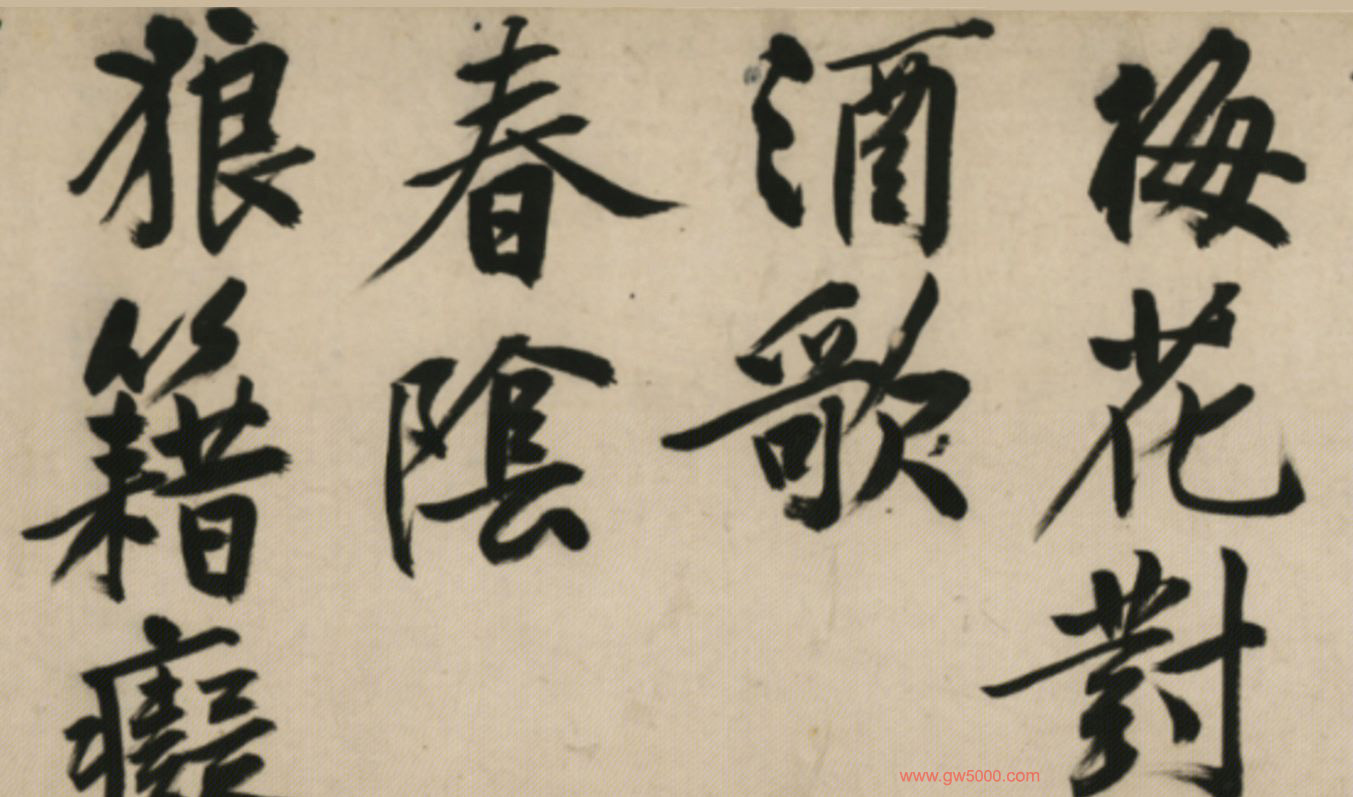 梅花對
酒歌
春陰
狼籍
www.gw5000.com